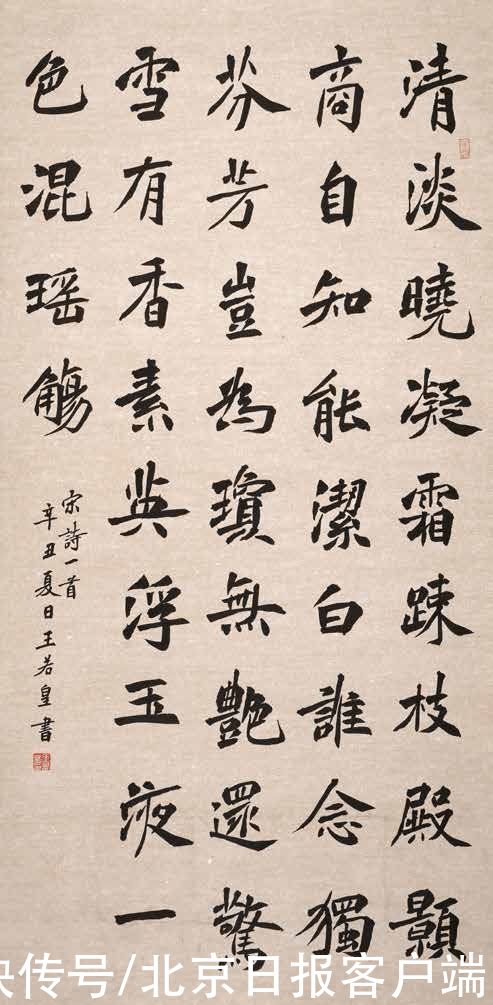 清淡曉凝霜踈枝殿顥
商自知能潔白誰念獨
芬芳豈為瓊無艷還驚
雪有香素英浮玉液一
色混瑶觴
宋詩一首
辛丑夏日王若皇書
快传号/北京日报客户端